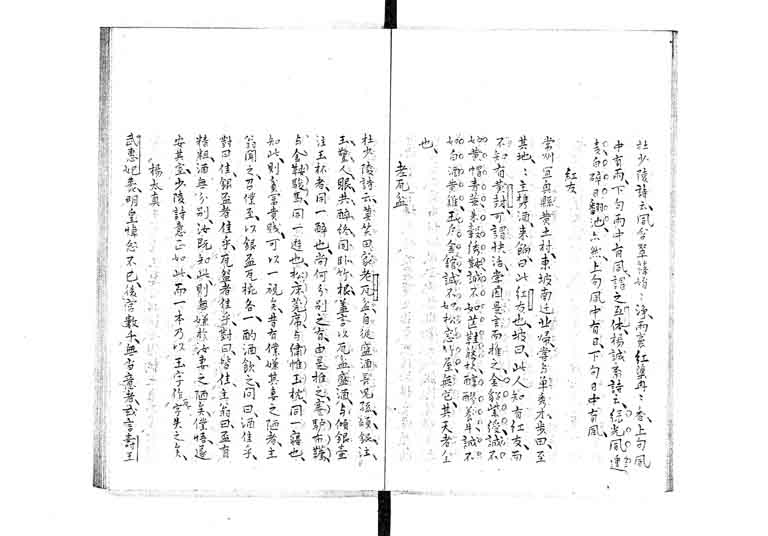 杜少陵詩云風含翠篠娟〻淨雨裛紅蕖冉〻香上句風
中有雨下句雨中有風謂之互体楊誠斎詩云綠光風連
麦白碎日翻池亦然上句風中有日下句日中有風
紅友
常州宜興縣黄土村東坡南迁北歸嘗与單秀才步田至
其地〻主携酒来餉曰此紅友也坡曰此人知有紅友而
不知有黄封可謂快活余因是言而推之金貂紫綬誠不
如黄帽青蓑朱轂绣鞍誠不如芒鞋藤杖醇醪養牛誠不
如白酒黄雞玉戶金鋪誠不如松窓竹屋無他其天者全
也
老瓦盆
杜少陵詩云莫笑田家老瓦盆自從盛酒長兒孫傾銀注
玉驚人眼共醉終同卧竹根蓋言以瓦盆盛酒与傾銀壺
注玉杯者同一醉也尚何分別之有由是推之蹇驢布韉
与金鞍駿馬同一遊也松床莞席与繡帷玉枕同一寢也
知此則貧富貴賎可以一視矣昔有僕嫌其妻之陋者主
翁聞之召僕至以銀盃瓦椀各一酌酒飲之问曰酒佳乎
對曰佳銀盃者佳乎瓦盌者佳乎對曰皆佳主翁曰盃有
精粗酒無分別汝既知此則無嫌於汝妻之陋矣僕悟遂
安其室少陵詩意正如此而一本乃以玉字作瓦字失之矣
楊太真
武惠妃薨明皇悼念不已後宮數千無當意者或言壽王